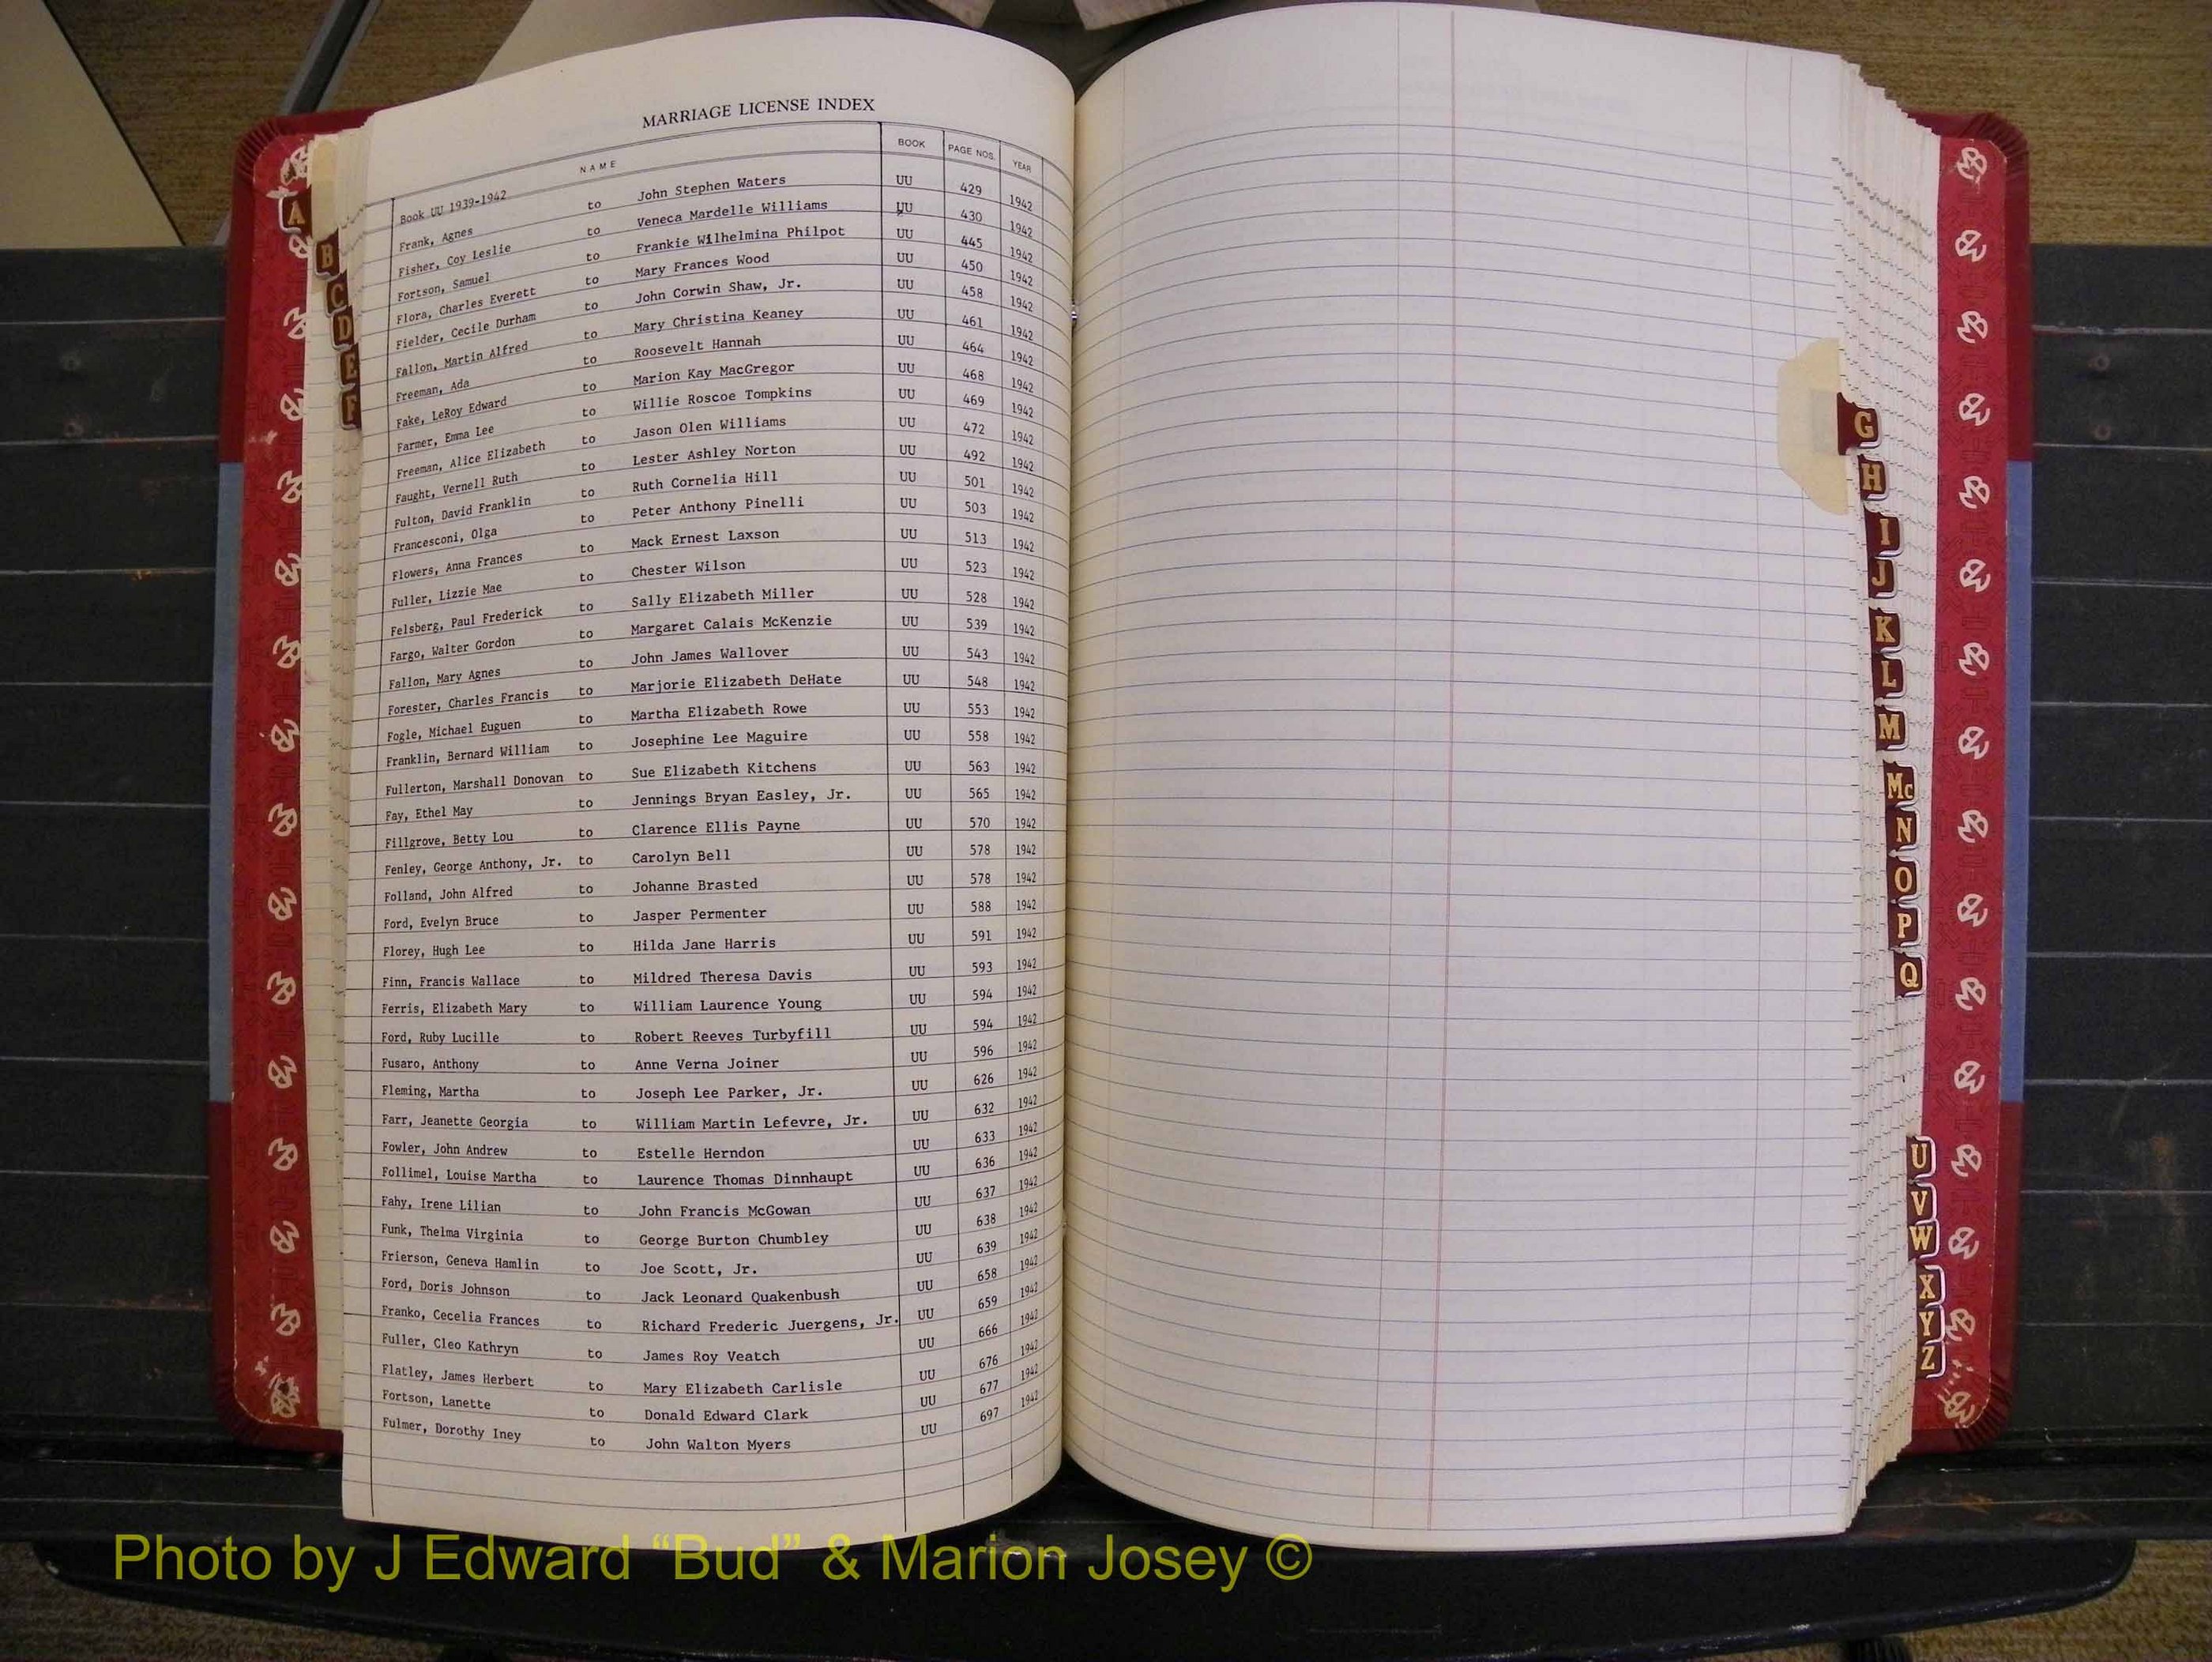 MARRIAGE LICENSE INDEX
NAME BOOK PAGE NOS. YEAR
Book UU 1939-1942
Frank, Agnes to John Stephen Waters UU 429 1942
Fisher, Coy Leslie to Veneca Mardelle Williams UU 430 1942
Fortson, Samuel to Frankie Wilhelmina Philpot UU 445 1942
Flora, Charles Everett to Mary Frances Wood UU 450 1942
Fielder, Cecile Durham to John Corwin Shaw, Jr. UU 458 1942
Fallon, Martin Alfred to Mary Christina Keaney UU 461 1942
Freeman, Ada to Roosevelt Hannah UU 464 1942
Fake, LeRoy Edward to Marion Kay MacGregor UU 468 1942
Farmer, Emma Lee to Willie Roscoe Tompkins UU 469 1942
Freeman, Alice Elizabeth to Jason Olen Williams UU 472 1942
Faught, Vernell Ruth to Lester Ashley Norton UU 492 1942
Fulton, David Franklin to Ruth Cornelia Hill UU 501 1942
Francesconi, Olga to Peter Anthony Pinelli UU 503 1942
Flowers, Anna Frances to Mack Ernest Laxson UU 513 1942
Fuller, Lizzie Mae to Chester Wilson UU 523 1942
Felsberg, Paul Frederick to Sally Elizabeth Miller UU 528 1942
Fargo, Walter Gordon to Margaret Calais McKenzie UU 539 1942
Fallon, Mary Agnes to John James Wallover UU 543 1942
Forester, Charles Francis to Marjorie Elizabeth DeHate UU 548 1942
Fogle, Michael Euguen to Martha Elizabeth Rowe UU 553 1942
Franklin, Bernard William to Josephine Lee Maguire UU 558 1942
Fullerton, Marshall Donovan to Sue Elizabeth Kitchens UU 563 1942
Fay, Ethel May to Jennings Bryan Easley, Jr. UU 565 1942
Fillgrove, Betty Lou to Clarence Ellis Payne UU 570 1942
Fenley, George Anthony, Jr. to Carolyn Bell UU 578 1942
Folland, John Alfred to Johanne Brasted UU 578 1942
Ford, Evelyn Bruce to Jasper Permenter UU 588 1942
Florey, Hugh Lee to Hilda Jane Harris UU 591 1942
Finn, Francis Wallace to Mildred Theresa Davis UU 593 1942
Ferris, Elizabeth Mary to William Laurence Young UU 594 1942
Ford, Ruby Lucille to Robert Reeves Turbyfill UU 594 1942
Fusaro, Anthony to Anne Verna Joiner UU 596 1942
Fleming, Martha to Joseph Lee Parker, Jr. UU 626 1942
Farr, Jeanette Georgia to William Martin Lefevre, Jr. UU 632 1942
Fowler, John Andrew to Estelle Herndon UU 633 1942
Follimel, Louise Martha to Laurence Thomas Dinnhaupt UU 636 1942
Fahy, Irene Lilian to John Francis McGowan UU 637 1942
Funk, Thelma Virginia to George Burton Chumbley UU 638 1942
Frierson, Geneva Hamlin to Joe Scott, Jr. UU 639 1942
Ford, Doris Johnson to Jack Leonard Quakenbush UU 658 1942
Franko, Cecelia Frances to Richard Frederic Juergens, Jr. UU 659 1942
Fuller, Cleo Kathryn to James Roy Veatch UU 666 1942
Flatley, James Herbert to Mary Elizabeth Carlisle UU 676 1942
Fortson, Lanette to Donald Edward Clark UU 677 1942
Fulmer, Dorothy Iney to John Walton Myers UU 697 1942
A
B
C
D
E
F
G
H
I
J
K
L
M
Mc
N
O
P
Q
U
V
W
X
Y
Z
Photo by J Edward “Bud” & Marion Josey ©